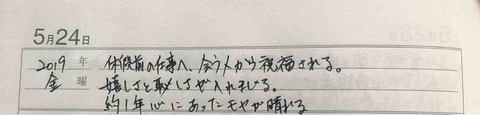 5月24日
2019年 休暇前の仕事へ、会う人から祝福される。
金曜 嬉しさと恥しさが入れまじる。
約1年心にあったモヤが晴れる